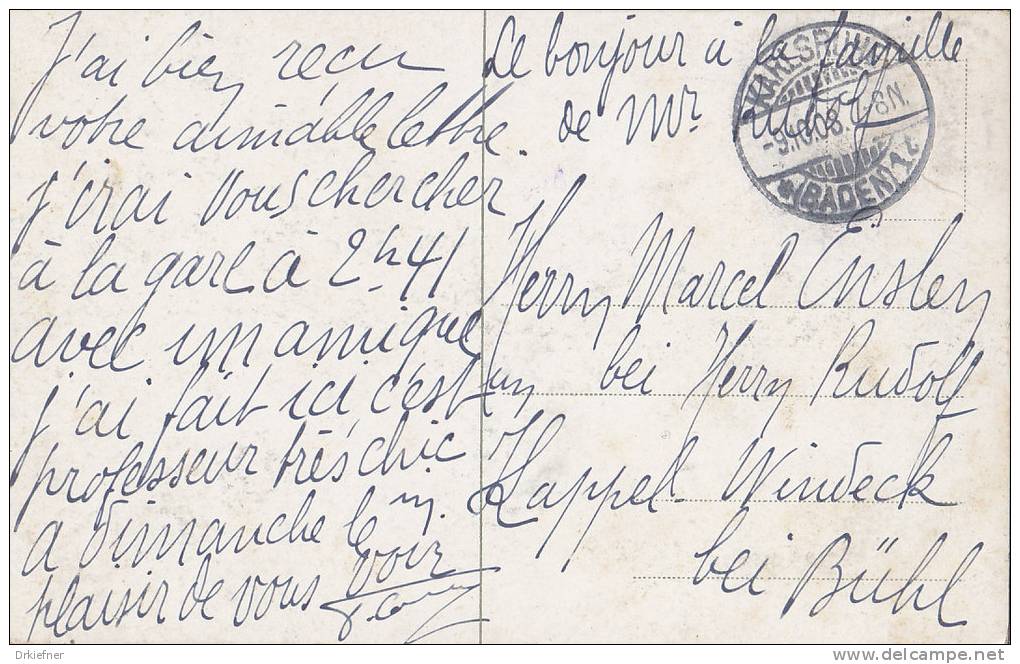 J'ai bien reçu
votre aimable lettre
j'irai vous chercher
à la gare à 2h 41
avec un ami que
j'ai fait ici c'est un
professeur très chic
a Dimanche le
plaisir de vous voir
Le bonjour à la famille
de Mr
KARLSRUHE
-9.10.08. 7-8N.
(BADEN) 1
Herrn Marcel Ensley
bei Herrn Rudolf
Kappel-Windeck
bei Bühl
Drkiefner
delcampe.net